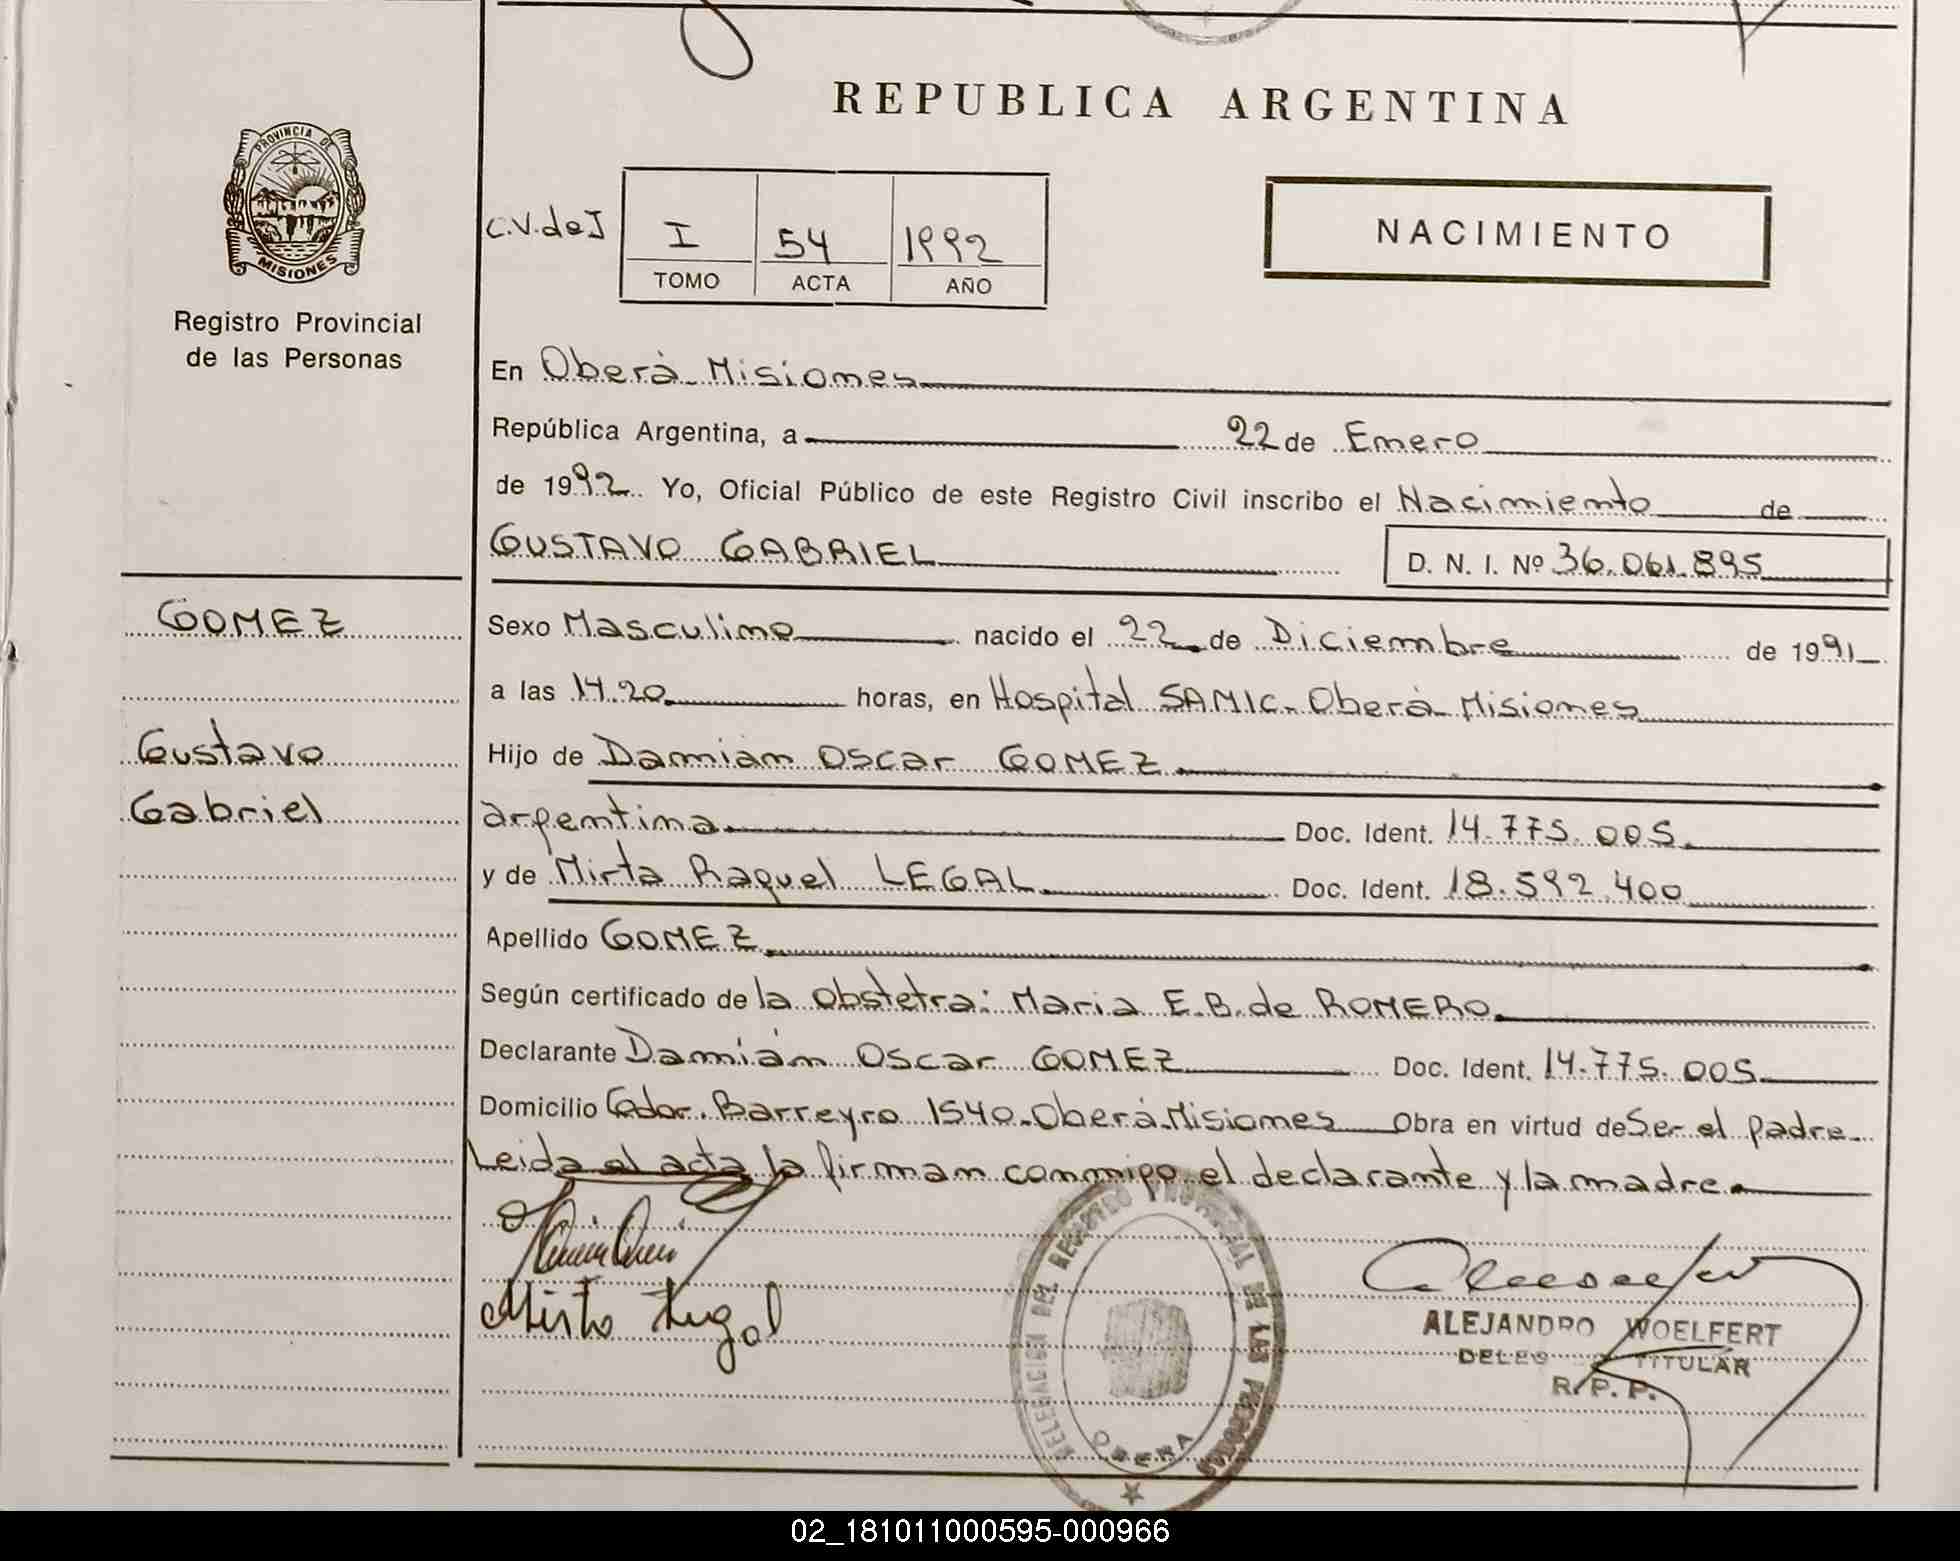 REPUBLICA ARGENTINA
PROVINCIA DE
MISIONES
Registro Provincial
de las Personas
C.V.deI
I 54 1992
TOMO ACTA AÑO
NACIMIENTO
En Oberà Misiones
República Argentina, a 22 de Enero
de 1992. Yo, Oficial Público de este Registro Civil inscribo el Nacimiento de
GUSTAVO GABRIEL D. N. I. Nº 36.061.895
GOMEZ
Gustavo
Gabriel
Sexo Masculino nacido el 22 de Diciembre de 1991
a las 14.20 horas, en Hospital SAMIC. Oberà Misiones
Hijo de Damiàn Oscar GOMEZ
argentina Doc. Ident. 14.775.005.
y de Mirta Raquel LEGAL Doc. Ident. 18.592.400
Apellido GOMEZ
Según certificado de la obstetra: Maria E.B. de ROMERO
Declarante Damián Oscar GOMEZ Doc. Ident. 14.775.005
Domicilio Gdor. Barreyro 1540-Oberà Misiones Obra en virtud de Ser el padre
Leida el acta la firman conmigo el declarante y la madre
Mirta Legal
DELEGACION DEL REGISTRO PROVINCIAL DE LAS PERSONAS
OBERA
ALEJANDRO WOELFERT
TITULAR
R. P. P.
02_181011000595-000966